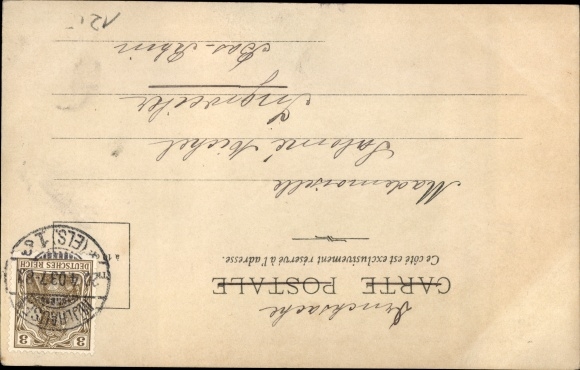 Drucksache
CARTE POSTALE
Ce côté est exclusivement réservé à l'adresse.
Mademoiselle
Salomé Michel
Ingweiler
Bas-Rhin
3
DEUTSCHES REICH
MÜLHAUSEN
4.03.7-8
(ELS.) 1.
12.-